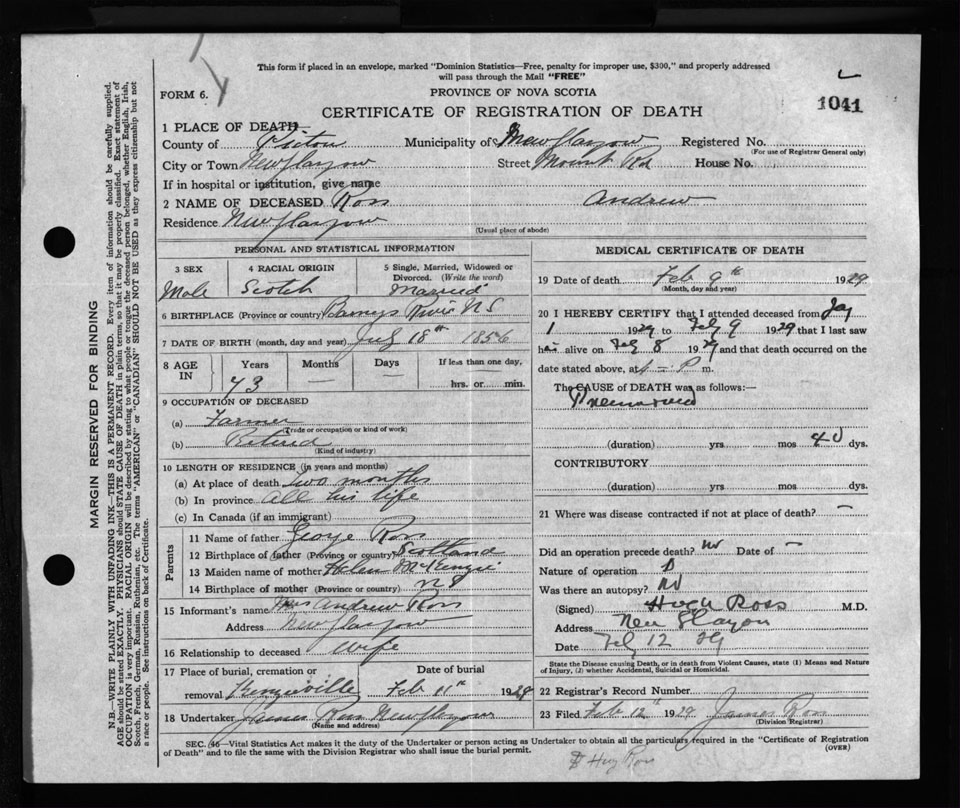 This form if placed in an envelope, marked "Dominion Statistics—Free, penalty for improper use, $300," and properly addressed
will pass through the Mail "FREE"
FORM 6.
PROVINCE OF NOVA SCOTIA
1041
CERTIFICATE OF REGISTRATION OF DEATH
1 PLACE OF DEATH—
County of Pictou Municipality of New Glasgow Registered No.
(For use of Registrar General only)
City or Town New Glasgow Street Mount Rd House No.
If in hospital or institution, give name
2 NAME OF DECEASED Ross Andrew
Residence New Glasgow
(Usual place of abode)
PERSONAL AND STATISTICAL INFORMATION
3 SEX 4 RACIAL ORIGIN 5 Single, Married, Widowed or
Divorced. (Write the word)
Male Scotch Married
6 BIRTHPLACE (Province or country) Barneys River N S
7 DATE OF BIRTH (month, day and year) 18th 1856
8 AGE IN Years Months Days If less than one day,
73 — — hrs. or min.
9 OCCUPATION OF DECEASED
(a) Farmer
(Trade or occupation or kind of work)
(b) Retired
(Kind of industry)
10 LENGTH OF RESIDENCE (in years and months)
(a) At place of death two months
(b) In province all his life
(c) In Canada (if an immigrant)
Parents
11 Name of father George Ross
12 Birthplace of father (Province or country) Scotland
13 Maiden name of mother Helen McKenzie
14 Birthplace of mother (Province or country) N S
15 Informant's name Mrs Andrew Ross
Address New Glasgow
16 Relationship to deceased wife
17 Place of burial, cremation or Date of burial
removal Kenzieville Feb 11th 1929
18 Undertaker James Ross New Glasgow
(Name and address)
MEDICAL CERTIFICATE OF DEATH
19 Date of death Feb 9th 1929
(Month, day and year)
20 I HEREBY CERTIFY that I attended deceased from Jay
1 1929 to Feb 9 1929 that I last saw
him alive on Feb 8 1929 and that death occurred on the
date stated above, at P m.
The CAUSE OF DEATH was as follows:—
(duration) yrs mos 40 dys.
CONTRIBUTORY
(duration) yrs. mos dys.
21 Where was disease contracted if not at place of death? —
Did an operation precede death? no Date of —
Nature of operation
Was there an autopsy? no
(Signed) Hugh Ross M.D.
Address New Glasgow
Date Feb 12 29
State the Disease causing Death, or in death from Violent Causes, state (1) Means and Nature
of Injury, (2) whether Accidental, Suicidal or Homicidal.
22 Registrar's Record Number
23 Filed Feb 12th 1929 James Ross
(Division Registrar)
SEC. 46—Vital Statistics Act makes it the duty of the Undertaker or person acting as Undertaker to obtain all the particulars required in the "Certificate of Registration
of Death" and to file the same with the Division Registrar who shall issue the burial permit. (OVER)
Ross
MARGIN RESERVED FOR BINDING
N.B.—WRITE PLAINLY WITH UNFADING INK—THIS IS A PERMANENT RECORD. Every item of information should be carefully supplied.
AGE should be stated EXACTLY. PHYSICIANS should STATE CAUSE OF DEATH in plain terms, so that it may be properly classified. Exact statement of
OCCUPATION is very important. RACIAL ORIGIN will be described by stating to what people or tongue the deceased person belonged, whether English, Irish,
Scotch, French, German, Russian, Ruthenian, etc. The terms "AMERICAN" or "CANADIAN" SHOULD NOT BE USED as they express citizenship but not
a race or people. See instructions on back of Certificate.